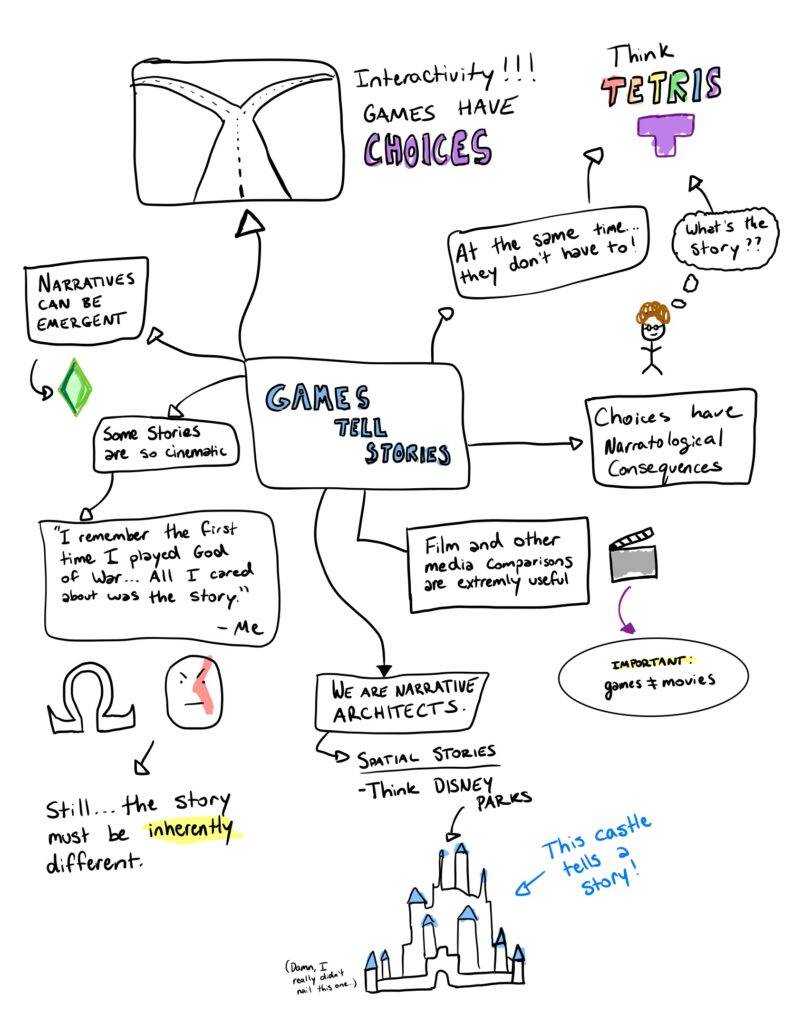 Interactivity!!!
GAMES HAVE
CHOICES
Think
TETRIS
At the same time...
they don't have to!
What's the
story??
NARRATIVES
CAN BE
EMERGENT
GAMES
TELL
STORIES
Some Stories
are so cinematic
Choices have
Narratological
Consequences
"I remember the first
time I played God
of War... All I cared
about was the story."
- Me
Film and other
media comparisons
are extremly useful
IMPORTANT:
games ≠ movies
WE ARE NARRATIVE
ARCHITECTS.
SPATIAL STORIES
-Think DISNEY
PARKS
Still... the story
must be inherently
different.
This castle
tells a
story!
(Damn, I
really didn't
nail this one..)